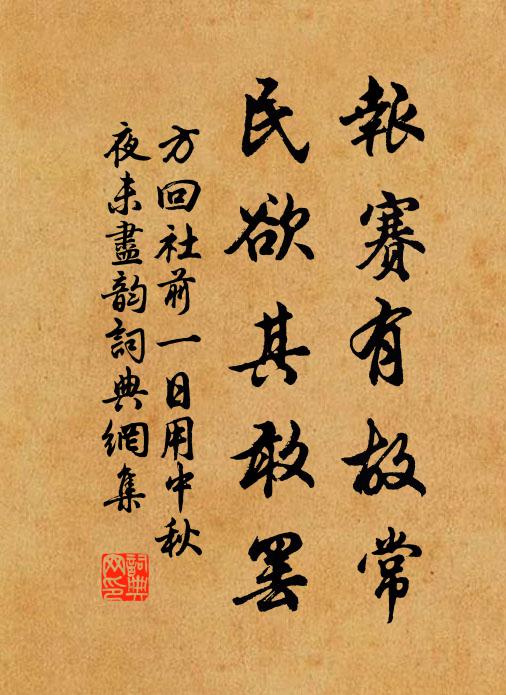 報賽有故常
民欲其敢罢
方回社前一日用中秋
夜未盡韵詞典網集
詞典网印